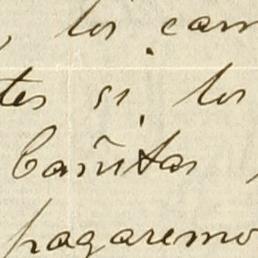 , los cam
tes si los
Cañitas
pagaremo